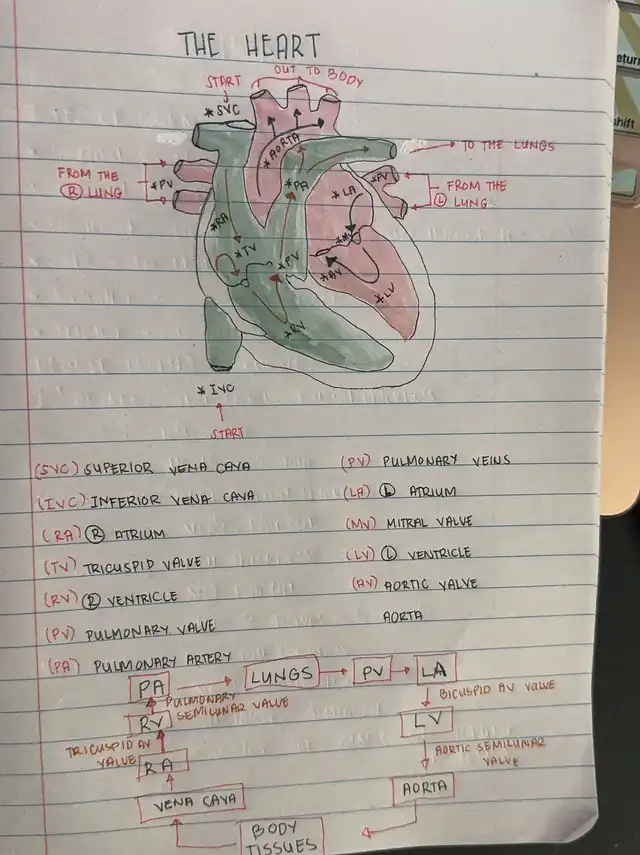 THE HEART
OUT TO BODY
START
* SVC
* AORTA
TO THE LUNGS
FROM THE
Ⓡ LUNG
* PV
* PA
* LA
* PV
FROM THE
Ⓛ LUNG
* RA
* TV
* MV
* PV
* AV
* LV
* RV
* IVC
START
(SVC) SUPERIOR VENA CAVA
(IVC) INFERIOR VENA CAVA
(RA) Ⓡ ATRIUM
(TV) TRICUSPID VALVE
(RV) Ⓡ VENTRICLE
(PV) PULMONARY VALVE
(PA) PULMONARY ARTERY
(PV) PULMONARY VEINS
(LA) Ⓛ ATRIUM
(MV) MITRAL VALVE
(LV) Ⓛ VENTRICLE
(AV) AORTIC VALVE
AORTA
PA
LUNGS
PV
LA
PULMONARY
SEMILUNAR VALVE
BICUSPID AV VALVE
RV
LV
TRICUSPID AV
VALVE
AORTIC SEMILUNAR
VALVE
RA
AORTA
VENA CAVA
BODY
TISSUES
eturn
shift